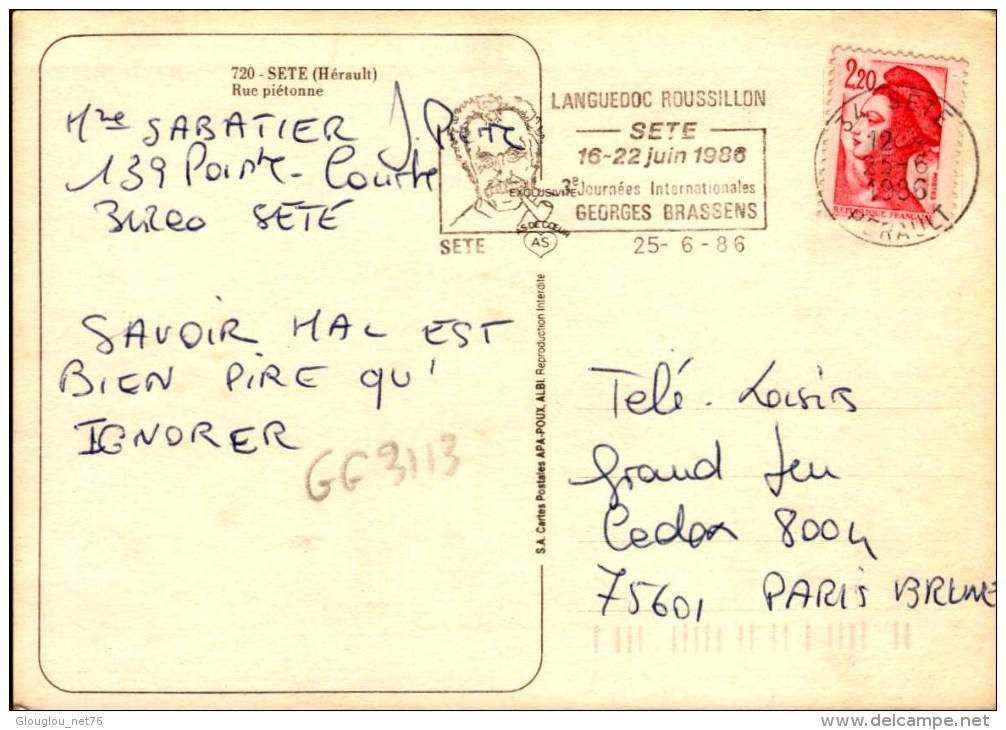 720 - SETE (Hérault)
Rue piétonne
Mme SABATIER J. Pierre
139 Pointe - Courte
34200 SETE
SAVOIR MAL EST
BIEN PIRE QU'
IGNORER
GG3113
LANGUEDOC ROUSSILLON
SETE
16-22 juin 1986
3e Journées Internationales
GEORGES BRASSENS
SETE
25-6-86
EXCLUSIVITE
AS DE COEUR
AS
2,20
REPUBLIQUE FRANÇAISE
POSTES
34 SETE
12
25-6
1986
HERAULT
S.A. Cartes Postales APA-POUX, ALBI. Reproduction Interdite
Télé. Loisirs
Grand Jeu
Cedex 8004
75601 PARIS BRUNE
Glouglou_net76
delcampe.net